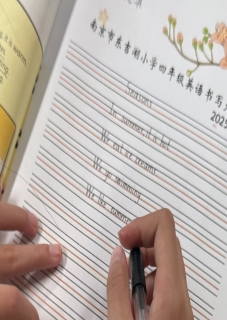 南京市东青湖小学四年级英语书写
2025
Seasons
In summer, it is hot
We eat ice creams
We go swimming
We like summer